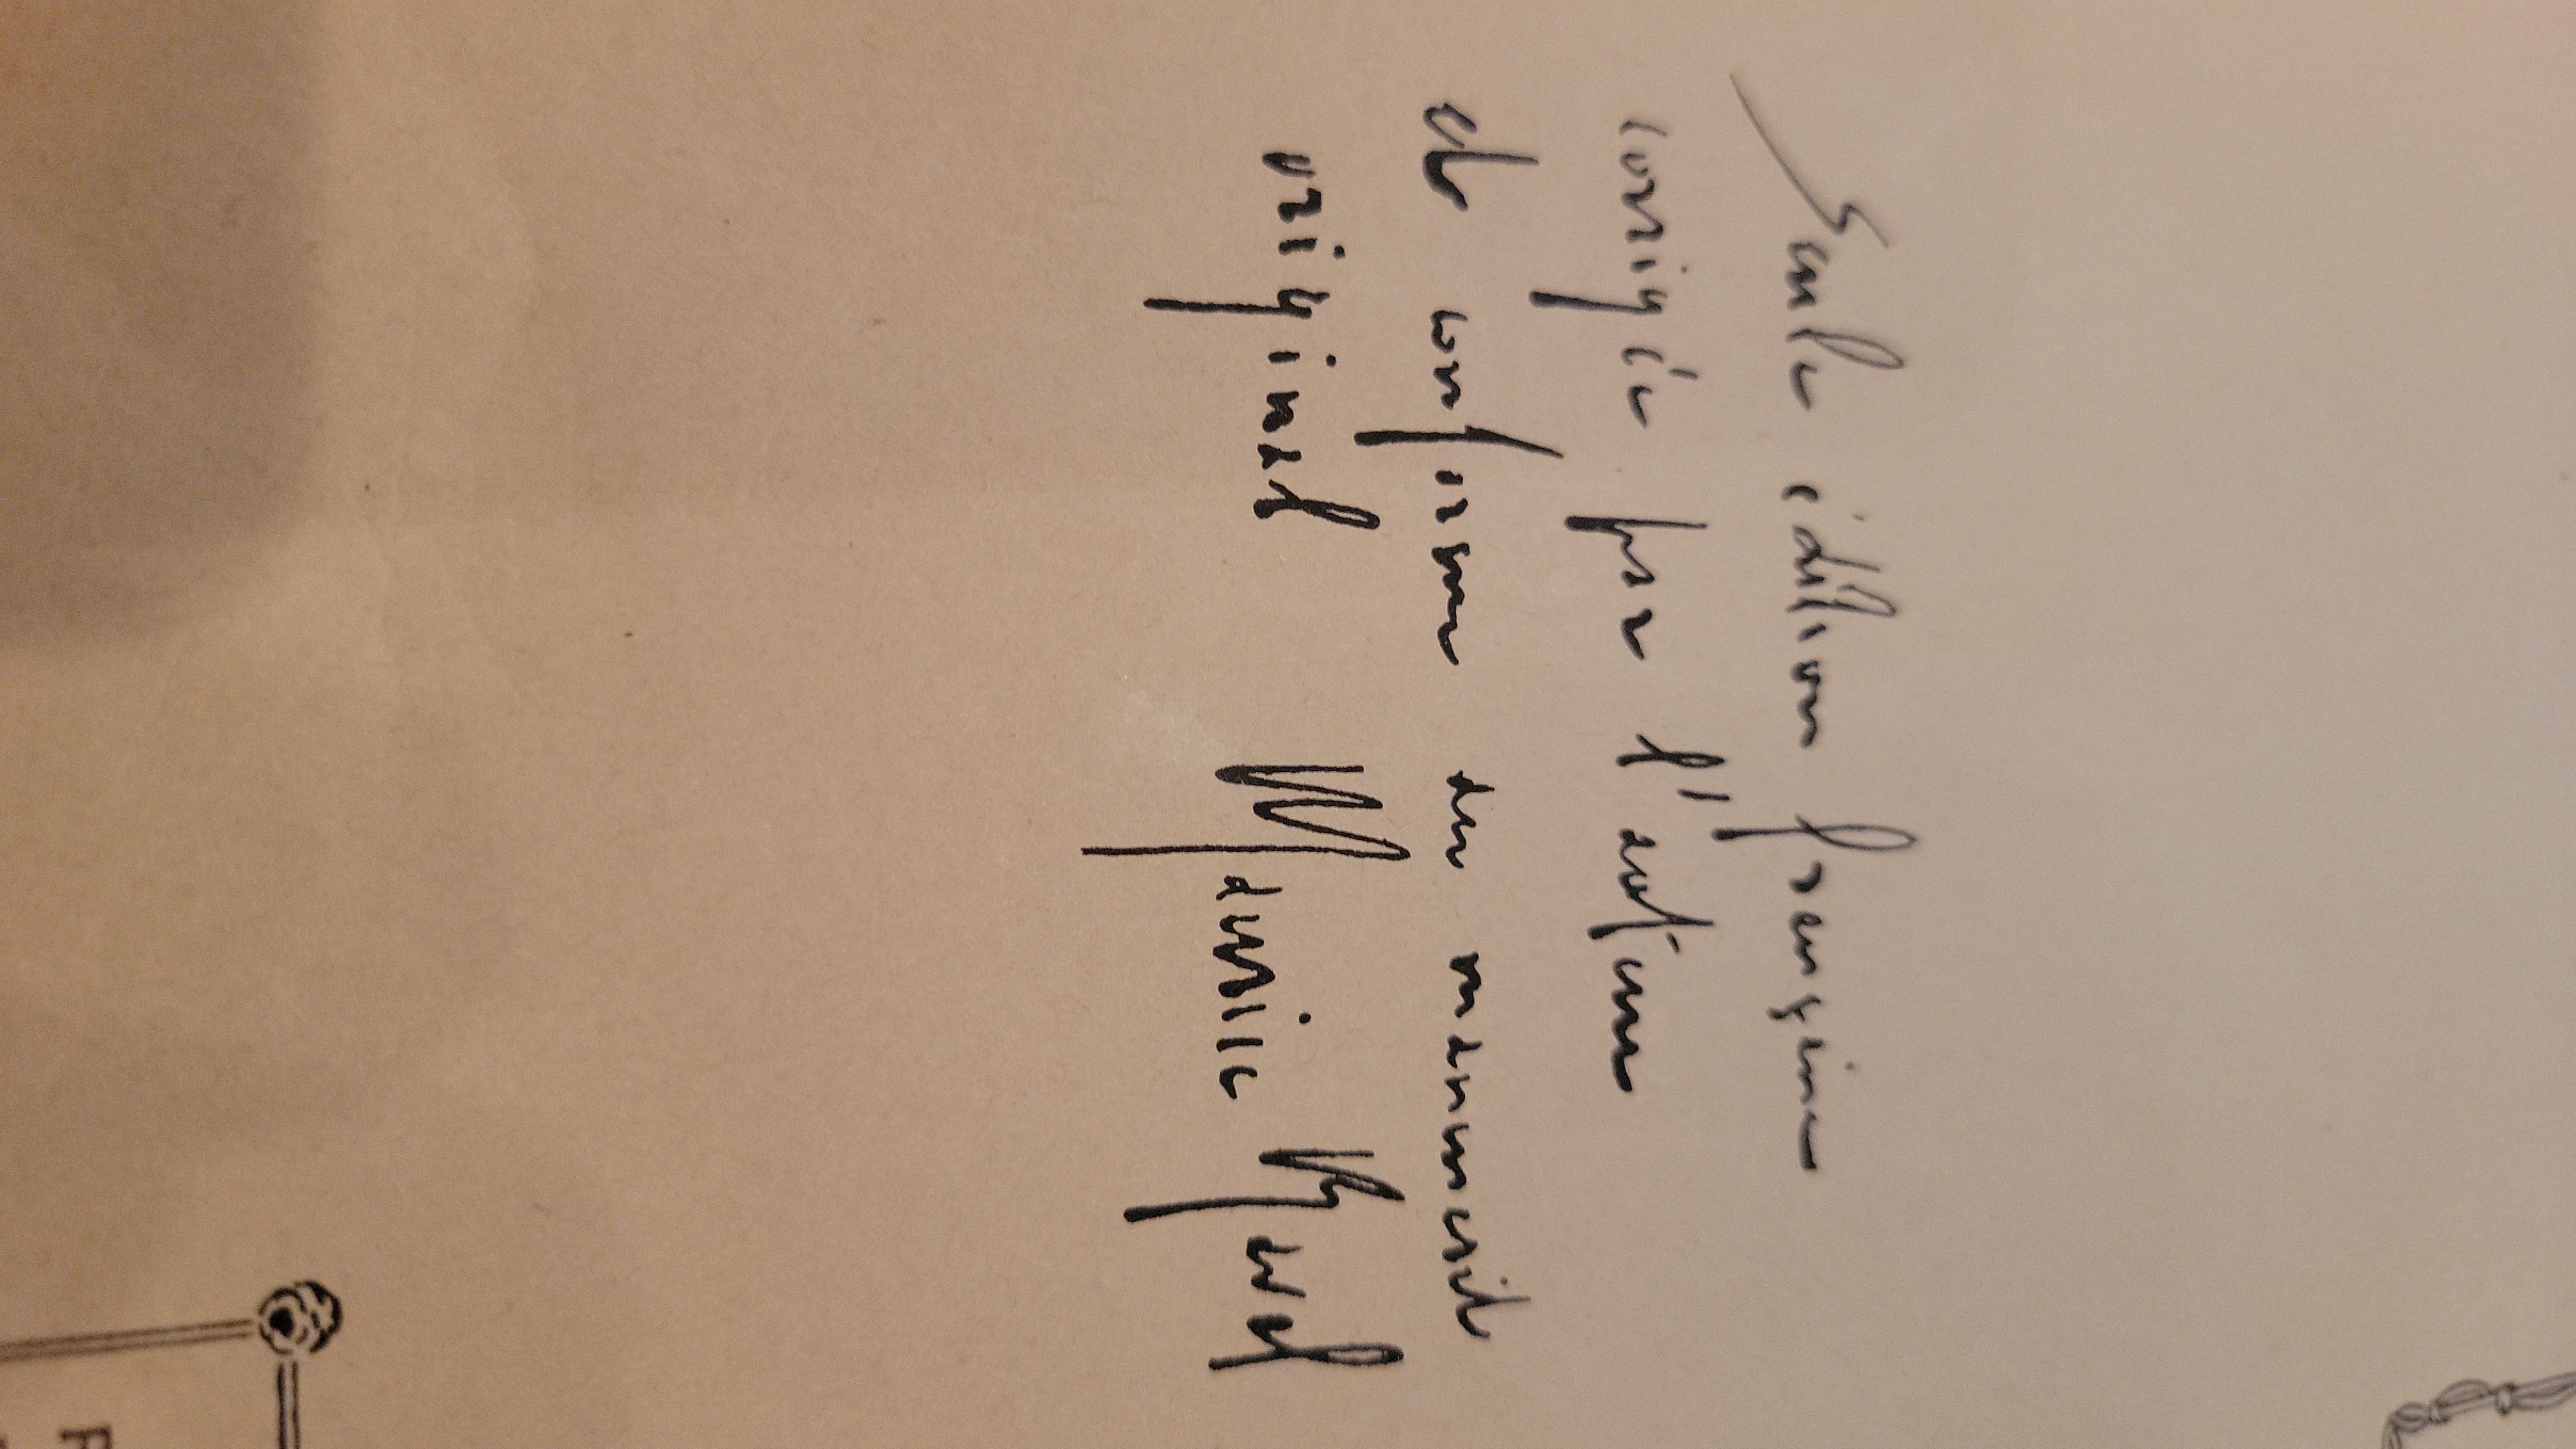 Seule édition française
corrigée par l'auteur
et conforme du manuscrit
original Maurice Ravel